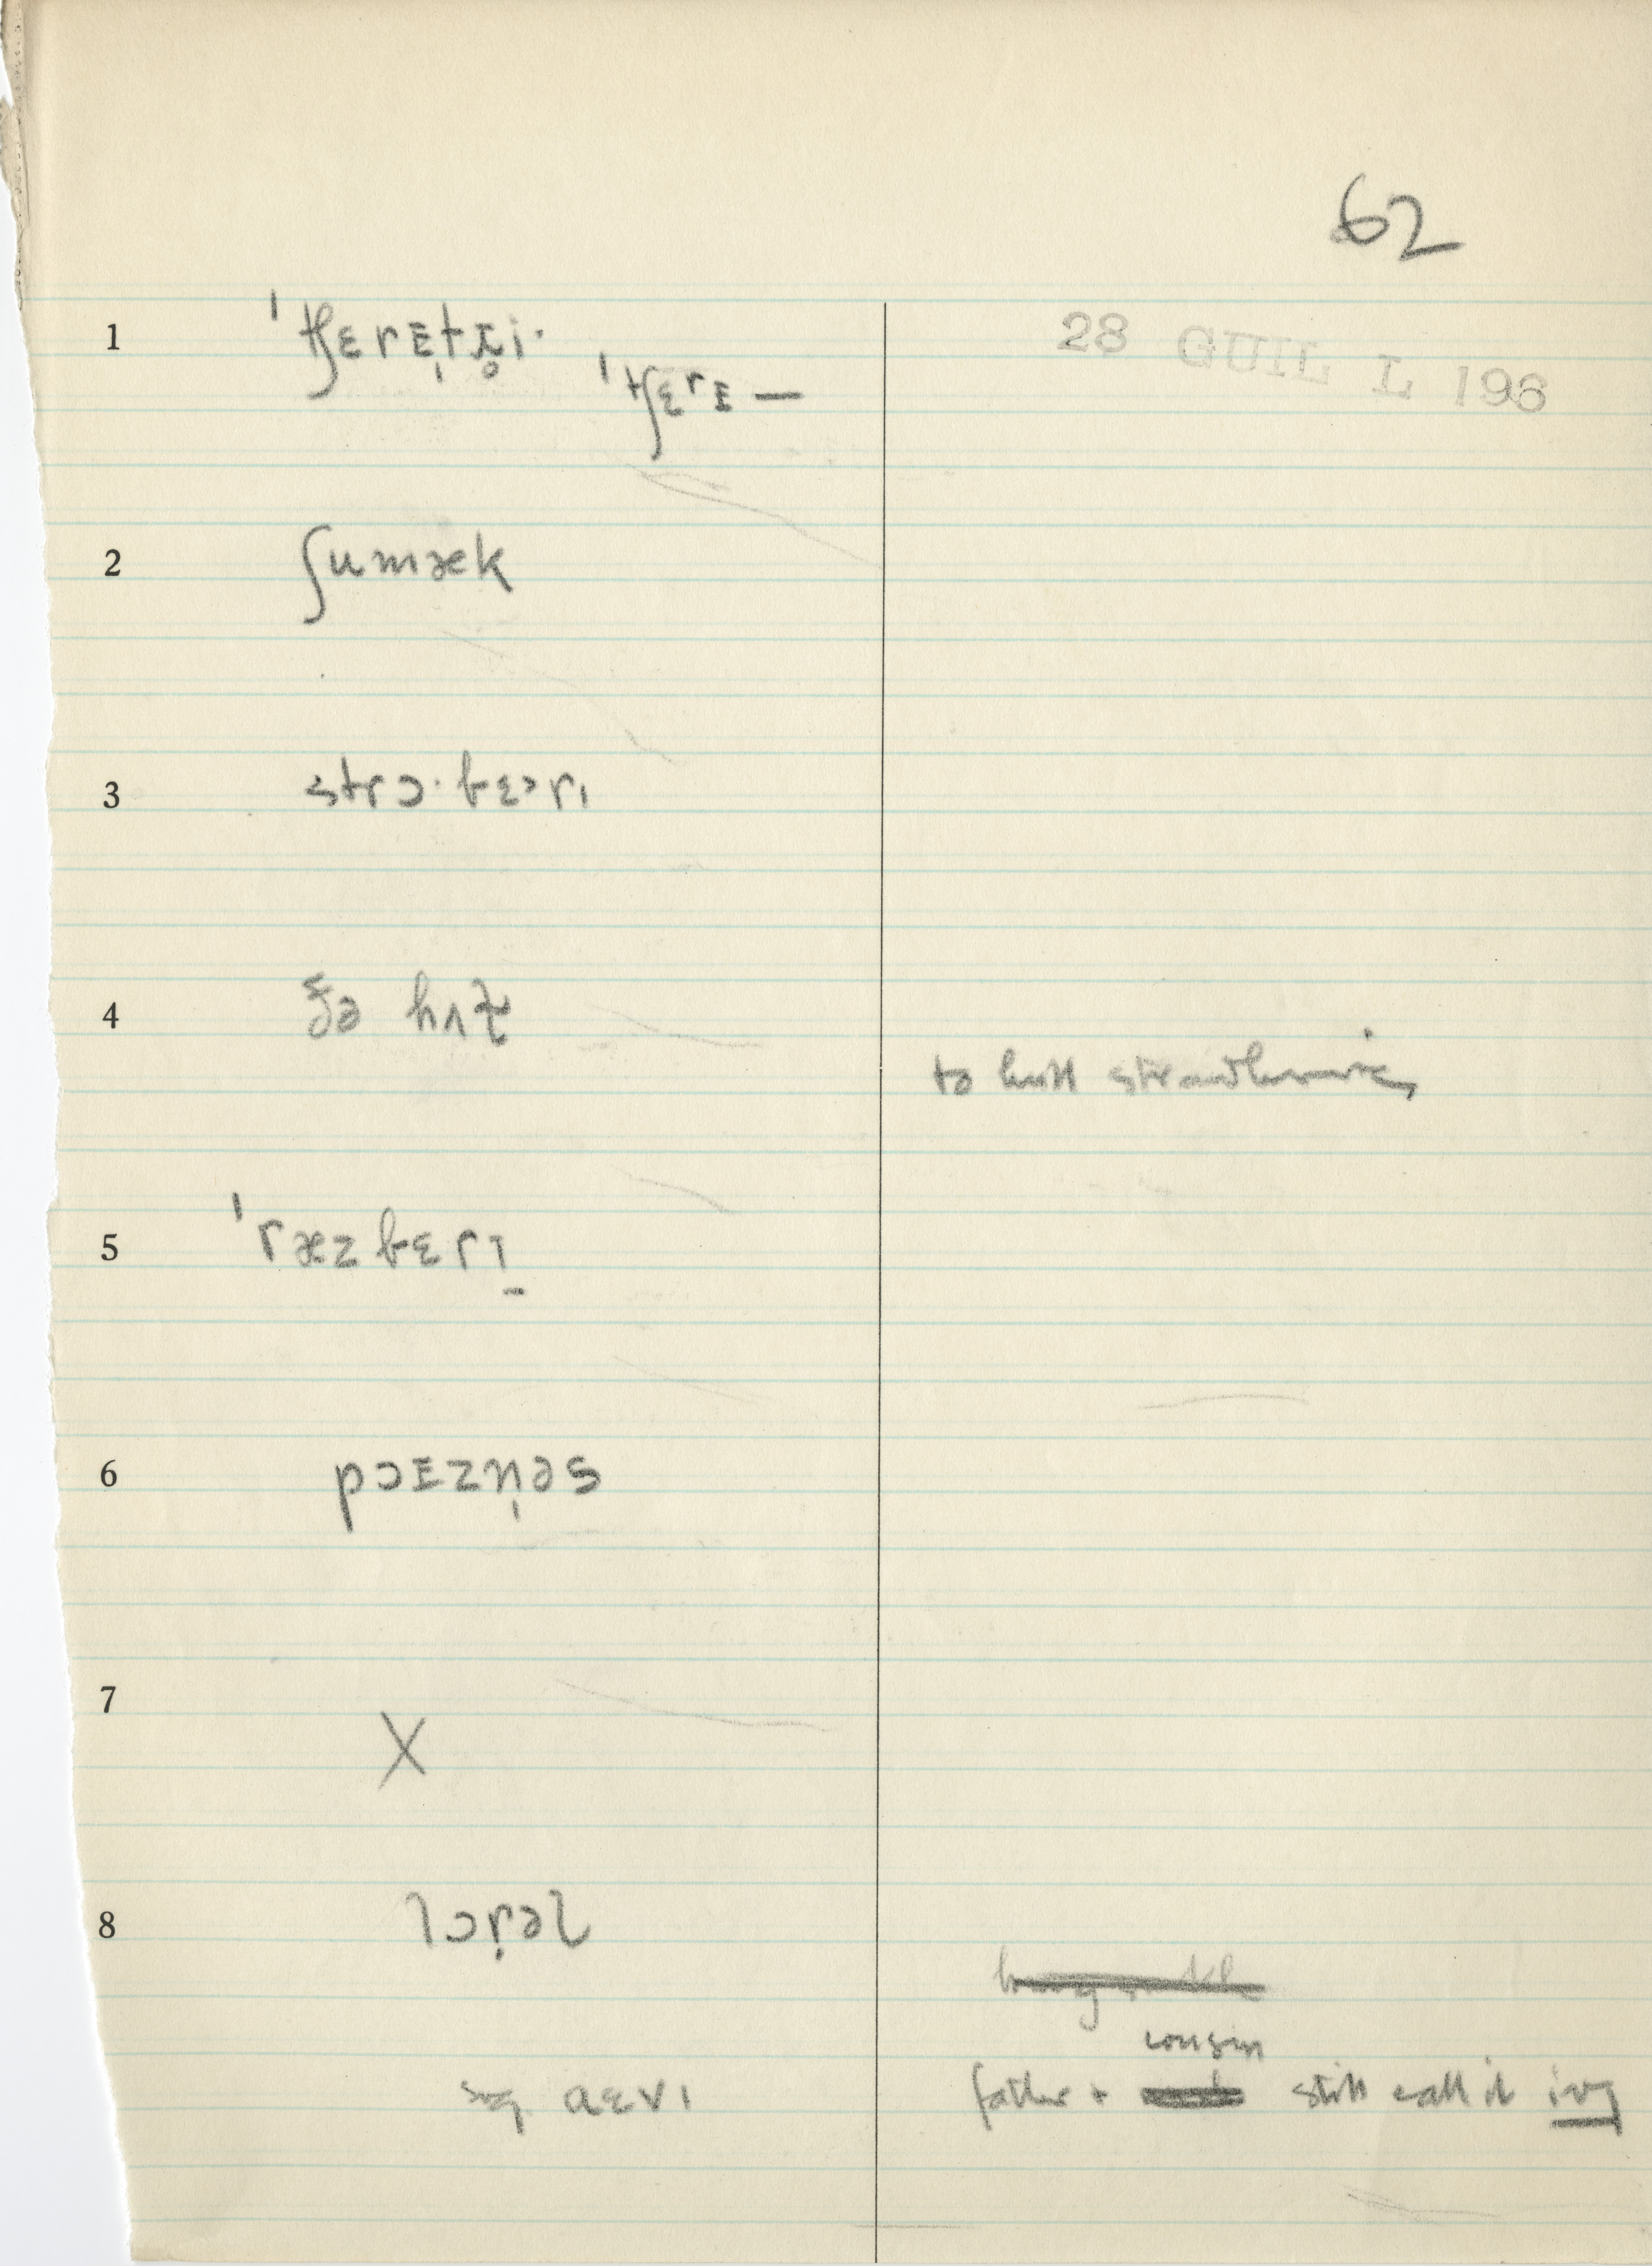 62
28 GUIL L 196
1 ˈtʃɛrɪ̩tɹ̥i·
ˈtʃɛrɪ —
2 ʃumæk
3 strɔ·bɛᵊrɪ
4 hʌɫ
to hull strawberries
5 ˈræzbɛrɪ̠
6 pɔɪzn̩əs
7 X
8 lɔr̩əɫ
cousin
aɛvɪ father + still call it ivy